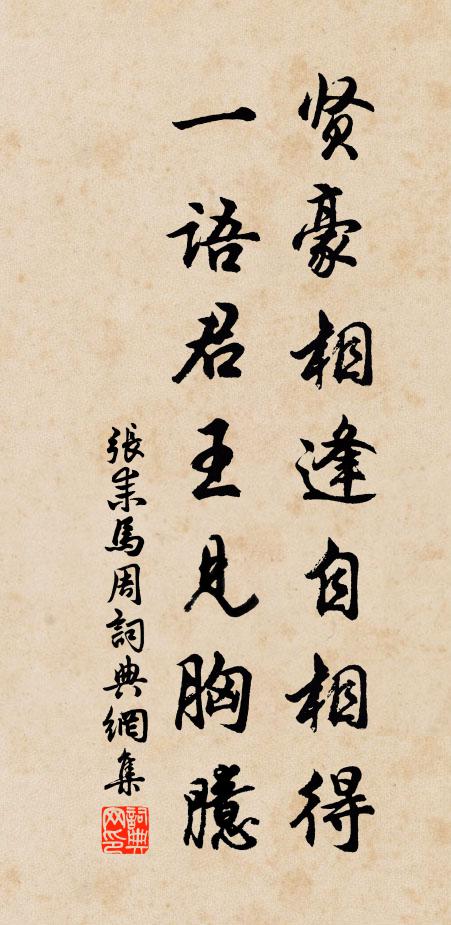 贤豪相逢自相得
一语君王见胸臆
張耒馬周詞典網集
詞典網印